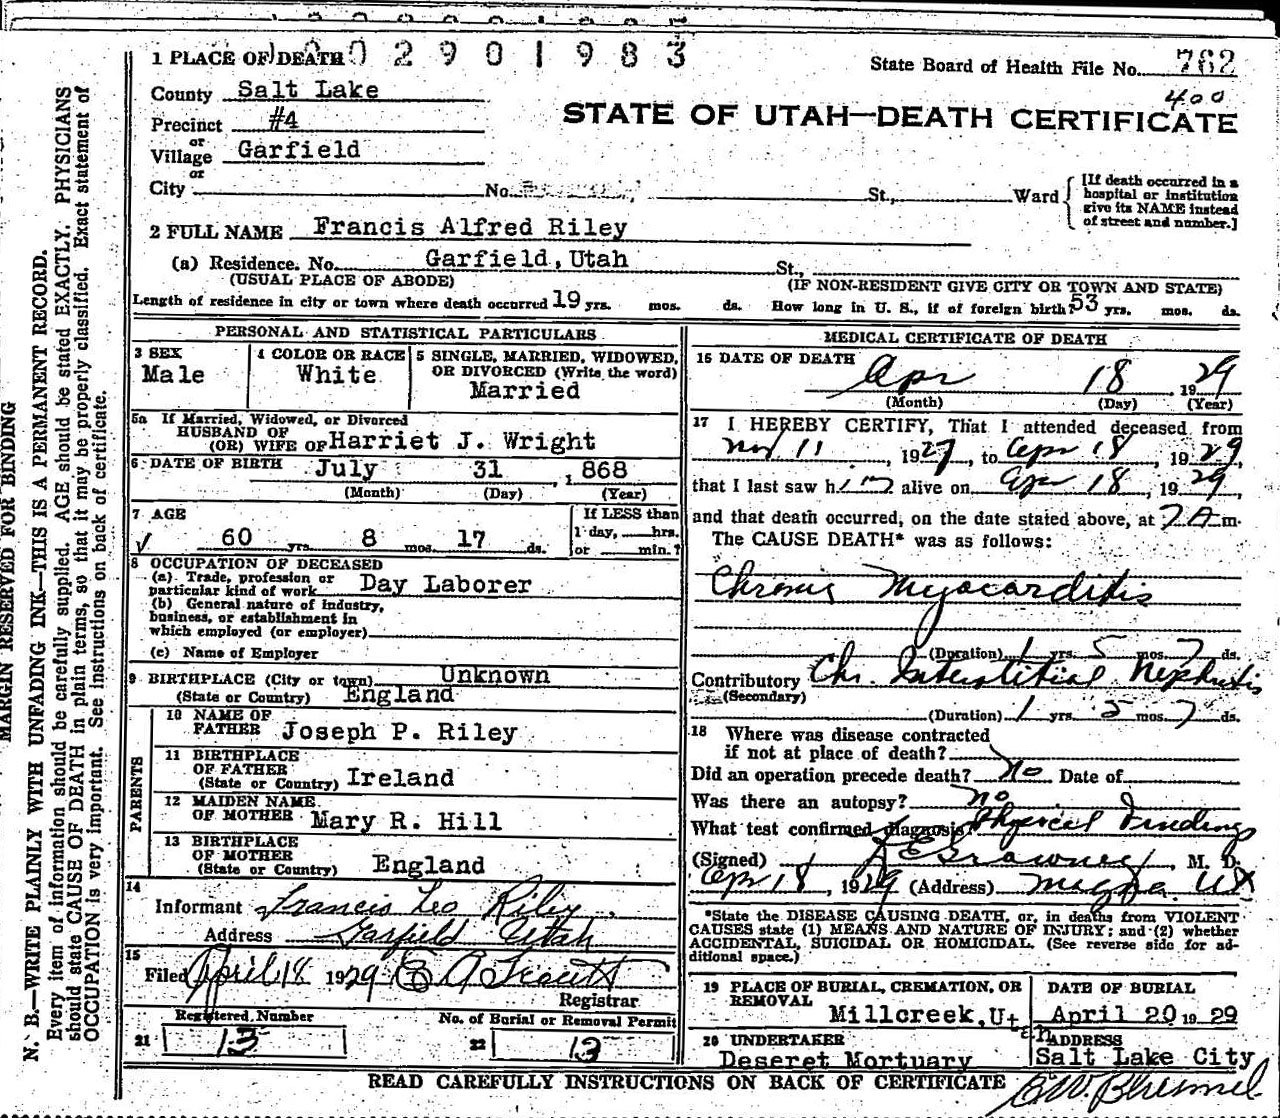 1 PLACE OF DEATH
1002901983
State Board of Health File No. 762
400
County Salt Lake
STATE OF UTAH—DEATH CERTIFICATE
Precinct #4
or
Village Garfield
or
City No. St., Ward
[If death occurred in a
hospital or institution
give its NAME instead
of street and number.]
2 FULL NAME Francis Alfred Riley
(a) Residence. No. Garfield, Utah St.,
(USUAL PLACE OF ABODE) (IF NON-RESIDENT GIVE CITY OR TOWN AND STATE)
Length of residence in city or town where death occurred 19 yrs. mos. ds. How long in U. S., if of foreign birth? 53 yrs. mos. ds.
PERSONAL AND STATISTICAL PARTICULARS
3 SEX
Male
4 COLOR OR RACE
White
5 SINGLE, MARRIED, WIDOWED,
OR DIVORCED (Write the word)
Married
5a If Married, Widowed, or Divorced
HUSBAND OF
(OR) WIFE OF Harriet J. Wright
6 DATE OF BIRTH July 31, 1868
(Month) (Day) (Year)
7 AGE
60 yrs. 8 mos. 17 ds.
If LESS than
1 day, hrs.
or min.?
8 OCCUPATION OF DECEASED
(a) Trade, profession or
particular kind of work Day Laborer
(b) General nature of Industry,
business, or establishment in
which employed (or employer)
(c) Name of Employer
9 BIRTHPLACE (City or town) Unknown
(State or Country) England
PARENTS
10 NAME OF
FATHER Joseph P. Riley
11 BIRTHPLACE
OF FATHER
(State or Country) Ireland
12 MAIDEN NAME
OF MOTHER Mary R. Hill
13 BIRTHPLACE
OF MOTHER
(State or Country) England
14
Informant Francis Leo Riley
Address Garfield Utah
15
Filed April 18 1929
Registrar
Registered Number
21 13
No. of Burial or Removal Permit
22 13
MEDICAL CERTIFICATE OF DEATH
16 DATE OF DEATH
Apr 18 1929
(Month) (Day) (Year)
17 I HEREBY CERTIFY, That I attended deceased from
Nov 11, 1927, to Apr 18, 1929,
that I last saw him alive on Apr 18, 1929,
and that death occurred, on the date stated above, at 7 A m.
The CAUSE DEATH* was as follows:
Chronic Myocarditis
(Duration) 1 yrs. 5 mos. 7 ds.
Contributory Chr. Interstitial Nephritis
(Secondary)
(Duration) 1 yrs. 5 mos. 7 ds.
18 Where was disease contracted
if not at place of death?
Did an operation precede death? No Date of
Was there an autopsy? no
What test confirmed diagnosis? Physical Findings
(Signed) M. D.
Apr 18, 1929 (Address) Magna Ut
*State the DISEASE CAUSING DEATH, or, in deaths from VIOLENT
CAUSES state (1) MEANS AND NATURE OF INJURY; and (2) whether
ACCIDENTAL, SUICIDAL OR HOMICIDAL. (See reverse side for ad-
ditional space.)
19 PLACE OF BURIAL, CREMATION, OR
REMOVAL
Millcreek, Ut
DATE OF BURIAL
April 20 1929
20 UNDERTAKER
Deseret Mortuary
ADDRESS
Salt Lake City
READ CAREFULLY INSTRUCTIONS ON BACK OF CERTIFICATE
MARGIN RESERVED FOR BINDING
N. B.—WRITE PLAINLY WITH UNFADING INK—THIS IS A PERMANENT RECORD.
Every item of information should be carefully supplied. AGE should be stated EXACTLY. PHYSICIANS
should state CAUSE OF DEATH in plain terms, so that it may be properly classified. Exact statement of
OCCUPATION is very important. See instructions on back of certificate.